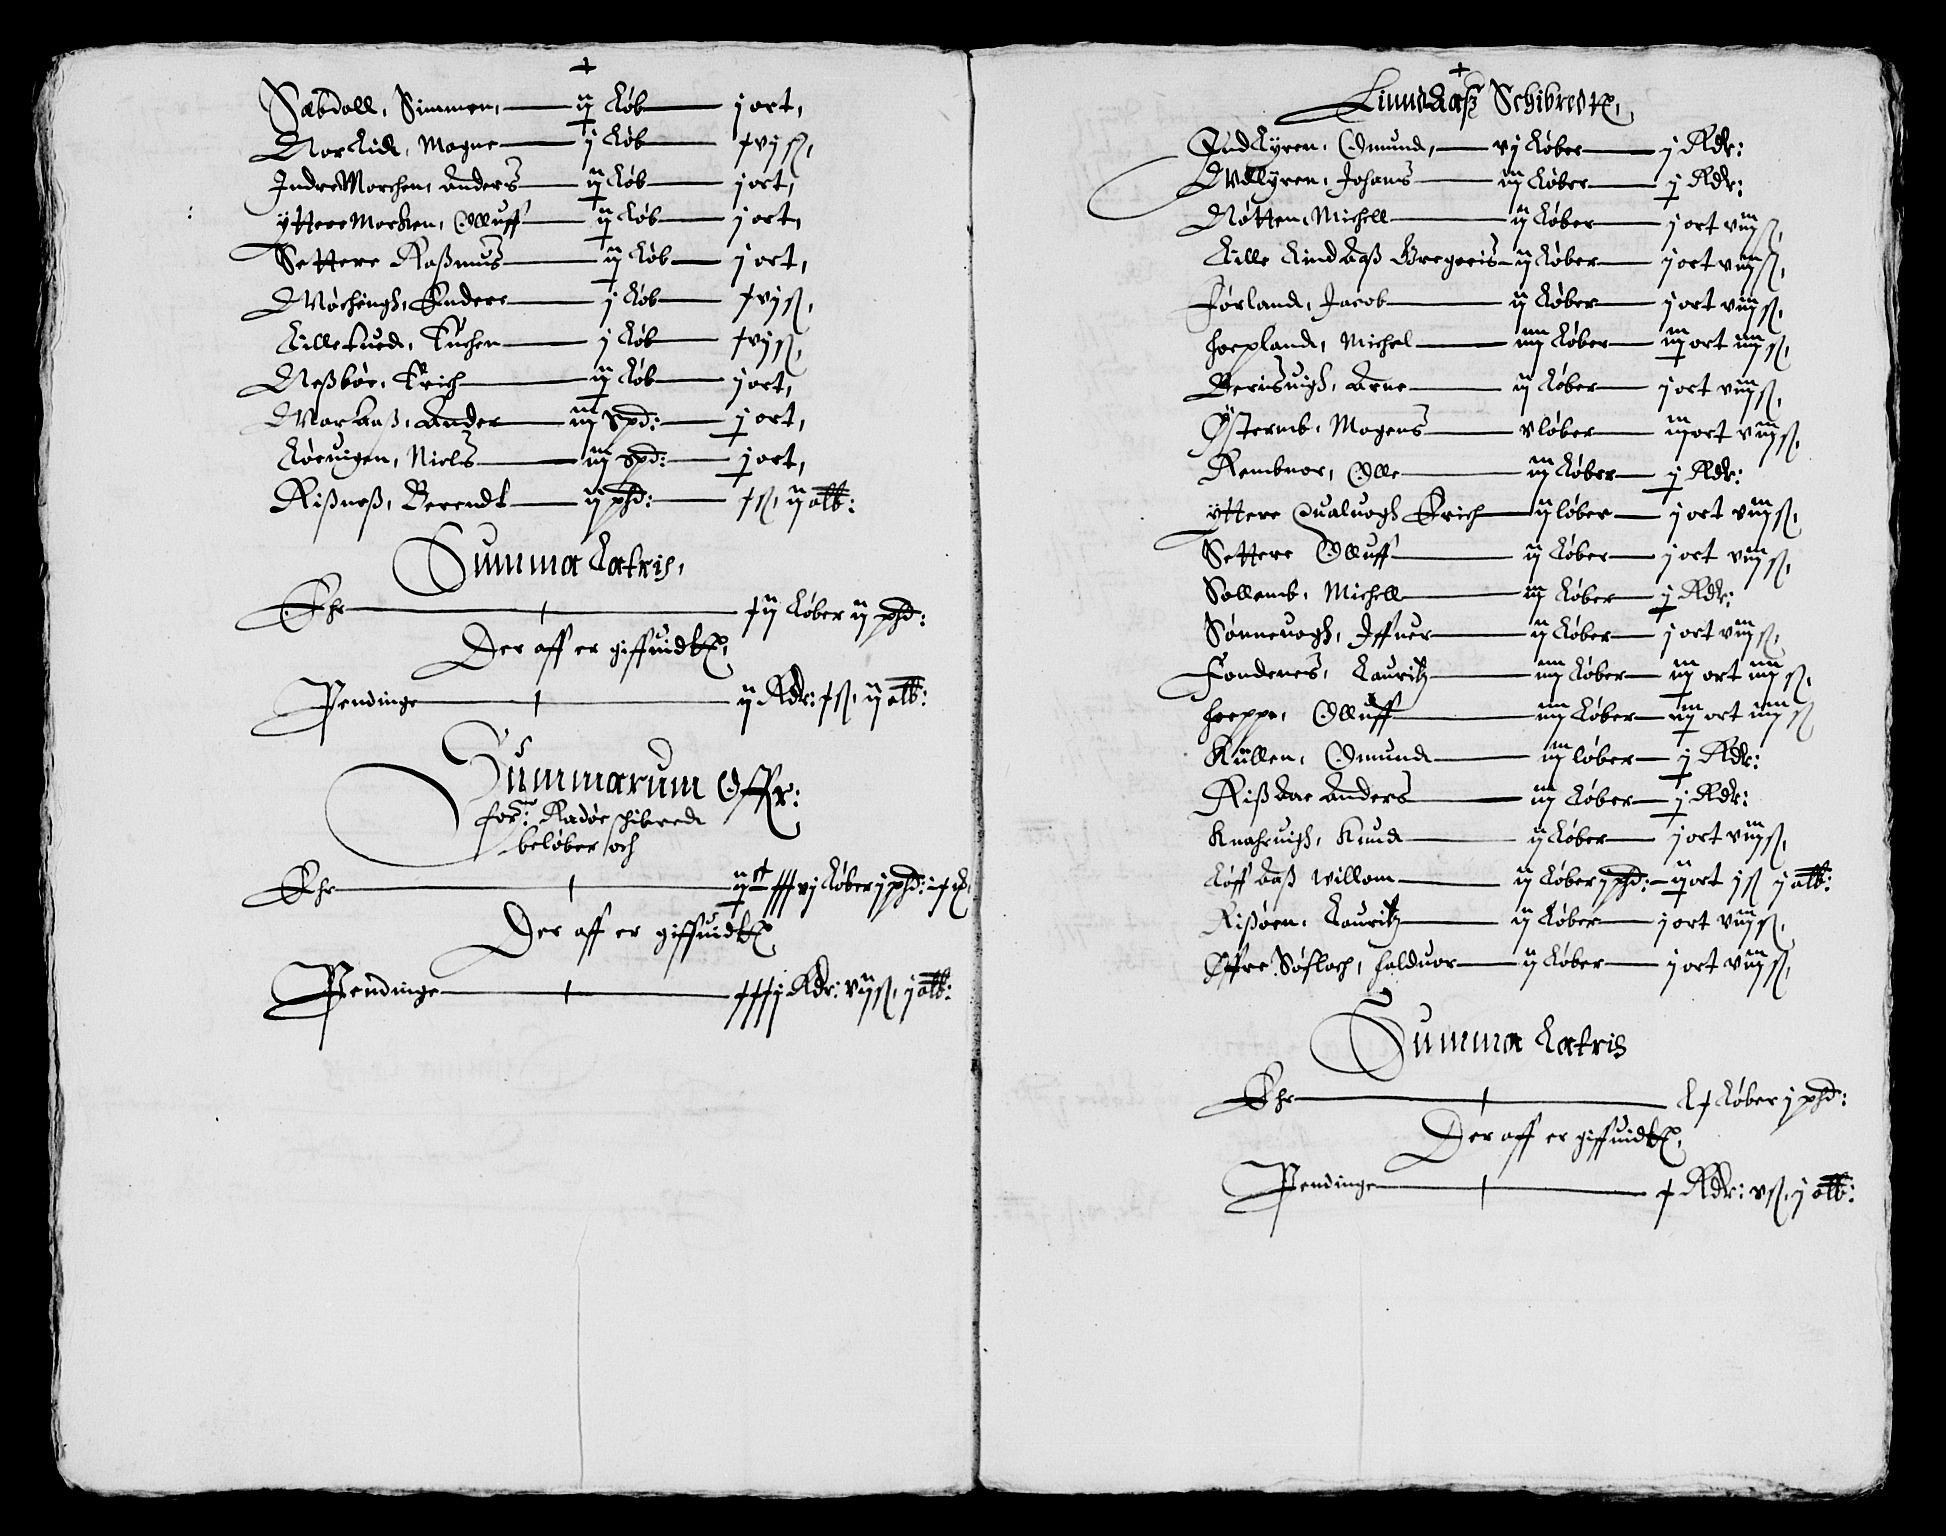 Sæbdall, Simmen, — ij Løb — j ort,
Norlide, Mogne — j Løb — xvj ß,
IndreMorchen, Anders — ij Løb — j ort,
ÿttere Morken, Olluff — ij Løb — j ort,
Settere Rasmus — ij Løb — j ort,
Møchingh, Endere — j Løb — xvj ß,
Lilletued, — j Løb — xvj ß,
Nesbøe, Erich — ij Løb — j ort,
Marhaß, Ander — iij Spd: — j ort,
Løevigen, Niels — iij Spd: — j ort,
Risneß, Berendt — ij phd: — x ß, ij alb:
Summa Latris,
Ehr — xij Løber ij phd:
Der aff er giffuidt,
Pendinge — ij Rdr: x ß, ij alb:
Summarum Offr:
for: Radøe schibrede
beløber sich
Ehr — vj Løber j phd:
Der aff er giffuidt
Pendinge — xxxxj Rdr: vij ß, j alb:
Linndaaß Schibrede,
IndLyren, Omund, — vj Løber — j Rdr:
Vdlyren, Johans — iij Løber — j Rdr:
Nøtten, Michell — ij Løber — j ort viij ß,
Lille Lindaaß Gregeris — ij Løber — j ort viij ß,
Førland, Jacob — ij Løber — j ort viij ß,
hoepland, Michel — iiij Løber — iij ort iiij ß,
Beruiigh, Arne — ij Løber — j ort viij ß,
Østernb, Mogens — v løber — iij ort viij ß,
Rembnor, Olle — iij Løber — j Rdr:
ÿttere Qualuogh Erich — ij løber — j ort viij ß,
Settere Olluff — ij Løber — j ort viij ß,
Sollemb, Michell — iij Løber — j Rdr:
Sønneuogh, Iffuer — ij Løber — j ort viij ß,
Fondenes, Lauritz — iiij Løber — iij ort iiij ß,
hoppe, Olluff — iiij Løber — iij ort iiij ß
Küllen, Omund — iij løber — j Rdr:
Rißaae Anders — iij Løber — j Rdr:
Knahruigh, Knud — ij Løber — j ort viij ß,
Løffaaß Willom — ij Løber j phd: — ij ort j ß j alb:
Risøen, Lauritz — ij Løber — j ort viij ß,
Øffre Søfloch, halduor — ij Løber — j ort viij ß,
Summa Latris
Ehr — Lx Løber j phd:
Der aff er giffuidt,
Pendinge — x Rdr: v ß, j alb: